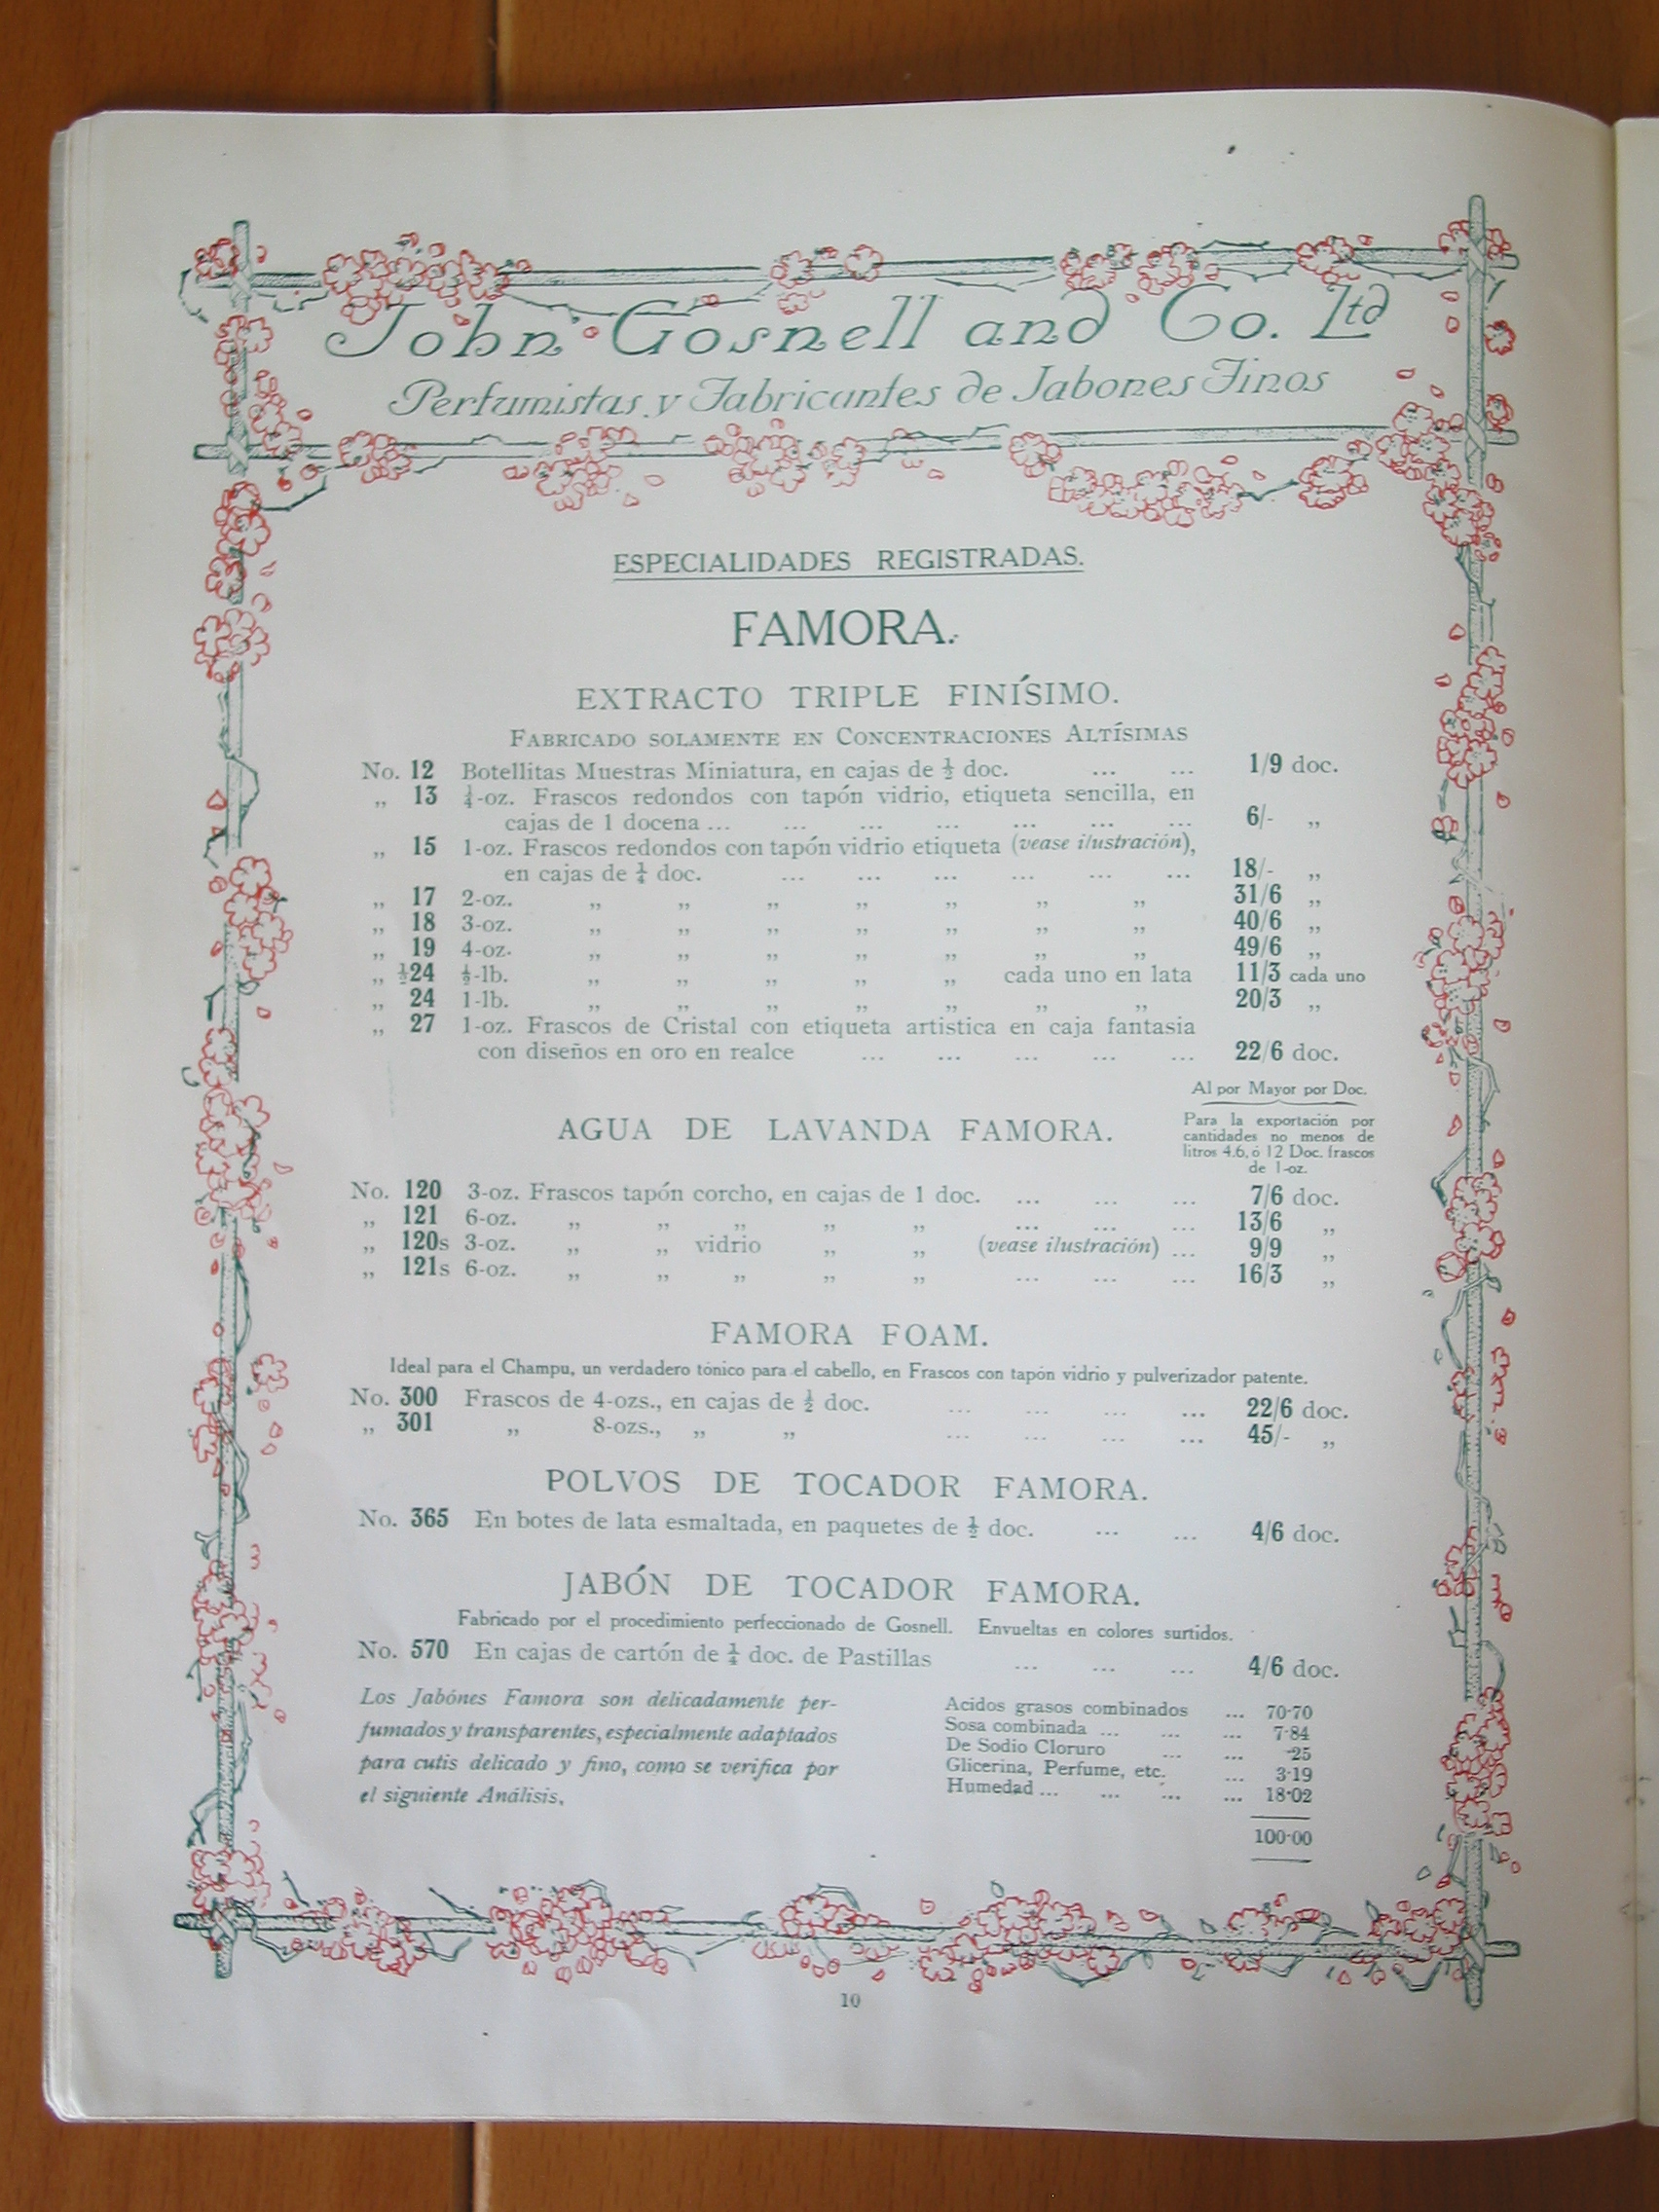 John Gosnell and Co. Ltd
Perfumistas y Fabricantes de Jabones Finos
ESPECIALIDADES REGISTRADAS.
FAMORA.
EXTRACTO TRIPLE FINÍSIMO.
FABRICADO SOLAMENTE EN CONCENTRACIONES ALTÍSIMAS
No. 12 Botellitas Muestras Miniatura, en cajas de ½ doc. ... ... 1/9 doc.
„ 13 ¼-oz. Frascos redondos con tapón vidrio, etiqueta sencilla, en
cajas de 1 docena ... ... ... ... ... ... ... 6/- „
„ 15 1-oz. Frascos redondos con tapón vidrio etiqueta (vease ilustración),
en cajas de ¼ doc. ... ... ... ... ... ... 18/- „
„ 17 2-oz. „ „ „ „ „ „ „ 31/6 „
„ 18 3-oz. „ „ „ „ „ „ „ 40/6 „
„ 19 4-oz. „ „ „ „ „ „ „ 49/6 „
„ ½24 ½-lb. „ „ „ „ „ cada uno en lata 11/3 cada uno
„ 24 1-lb. „ „ „ „ „ „ „ 20/3 „
„ 27 1-oz. Frascos de Cristal con etiqueta artistica en caja fantasia
con diseños en oro en realce ... ... ... ... ... 22/6 doc.
Al por Mayor por Doc.
AGUA DE LAVANDA FAMORA.
Para la exportación por
cantidades no menos de
litros 4.6, ó 12 Doc. frascos
de 1-oz.
No. 120 3-oz. Frascos tapón corcho, en cajas de 1 doc. ... ... ... 7/6 doc.
„ 121 6-oz. „ „ „ „ „ ... ... ... 13/6 „
„ 120s 3-oz. „ „ vidrio „ „ (vease ilustración) ... 9/9 „
„ 121s 6-oz. „ „ „ „ „ ... ... ... 16/3 „
FAMORA FOAM.
Ideal para el Champu, un verdadero tónico para el cabello, en Frascos con tapón vidrio y pulverizador patente.
No. 300 Frascos de 4-ozs., en cajas de ½ doc. ... ... ... ... 22/6 doc.
„ 301 „ 8-ozs., „ „ ... ... ... ... 45/- „
POLVOS DE TOCADOR FAMORA.
No. 365 En botes de lata esmaltada, en paquetes de ½ doc. ... ... 4/6 doc.
JABÓN DE TOCADOR FAMORA.
Fabricado por el procedimiento perfeccionado de Gosnell. Envueltas en colores surtidos.
No. 570 En cajas de cartón de ¼ doc. de Pastillas ... ... ... 4/6 doc.
Los Jabónes Famora son delicadamente per-
fumados y transparentes, especialmente adaptados
para cutis delicado y fino, como se verifica por
el siguiente Análisis.
Acidos grasos combinados ... 70·70
Sosa combinada ... ... ... 7·84
De Sodio Cloruro ... ... ·25
Glicerina, Perfume, etc. ... 3·19
Humedad ... ... ... ... 18·02
100·00
10